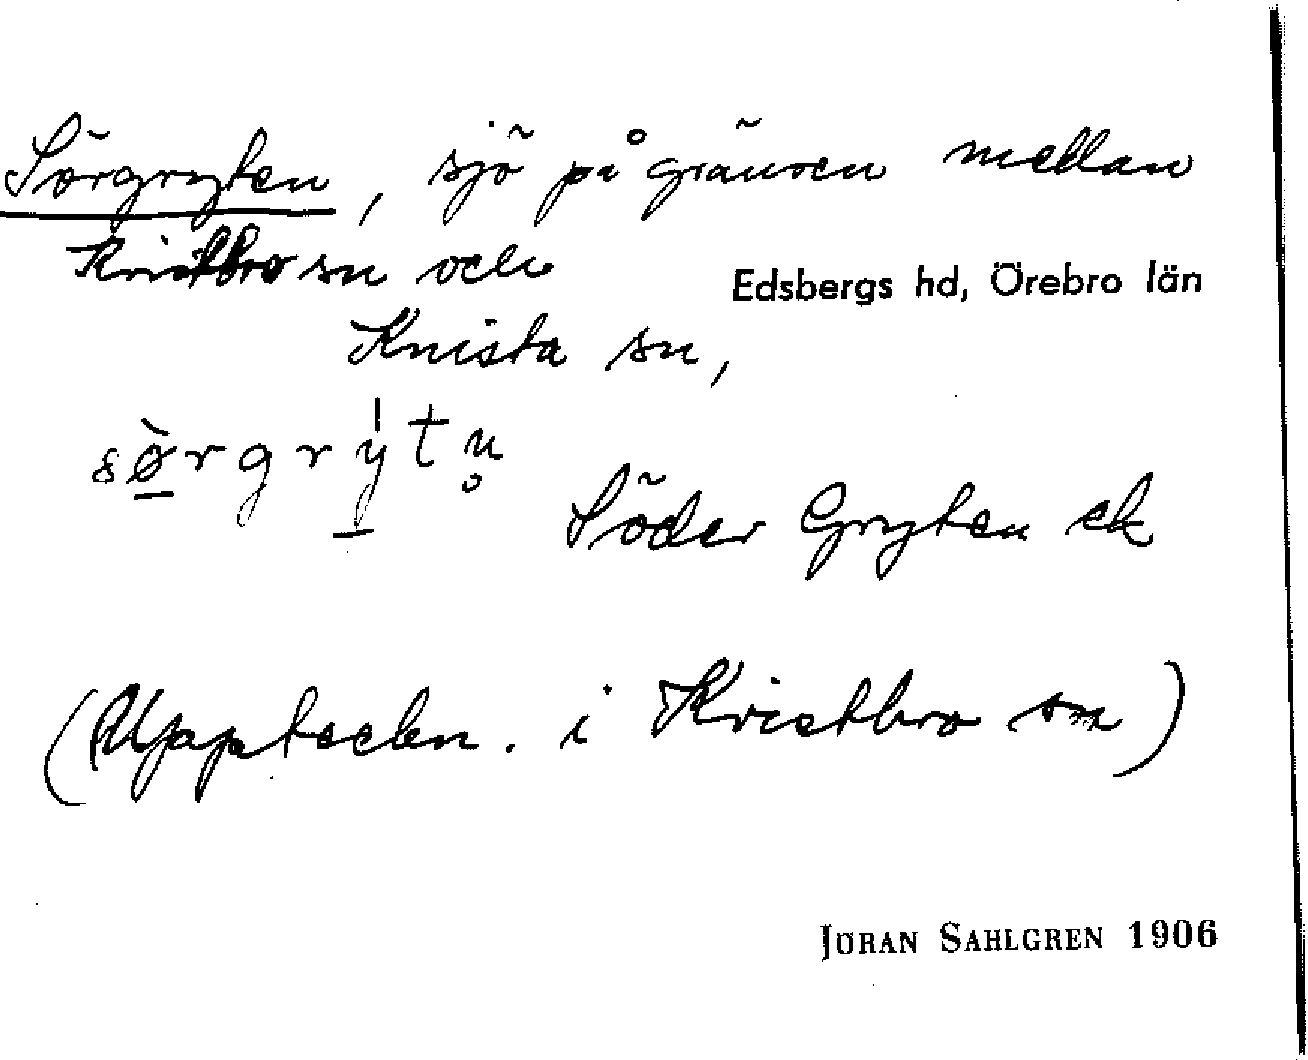 Sörgryten, sjö på gränsen mellan
Kvistbro sn och
Edsbergs hd, Örebro län
Knista sn,
sø̀rgrýtn̥
Söder Gryten ek
(Uppteckn. i Kvistbro sn)
JÖRAN SAHLGREN 1906